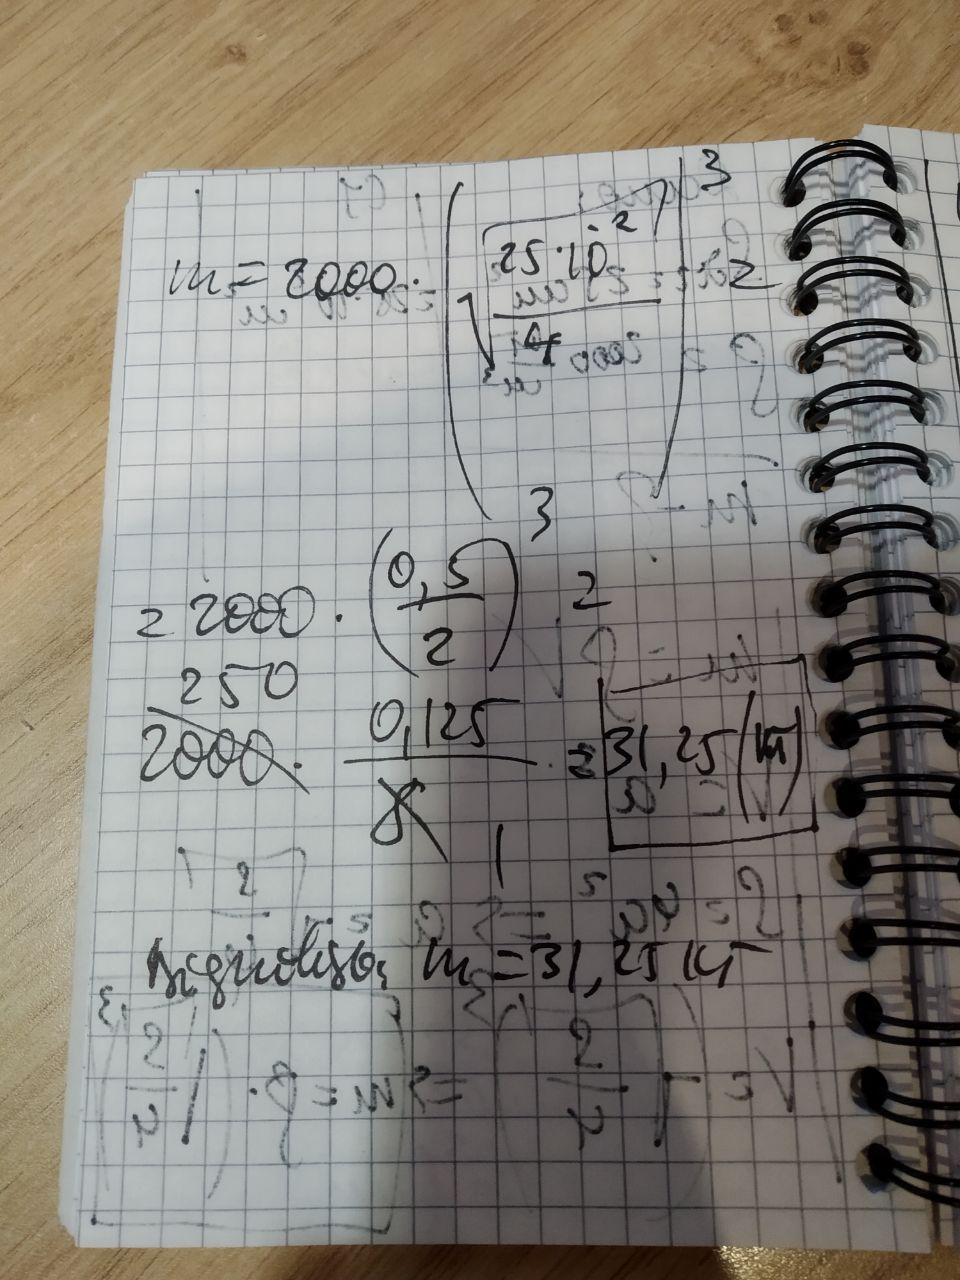 m = 2000 · (√(25·10⁻² / 4))³ =
= 2000 · (0,5 / 2)³ =
250
2000 · 0,125 / 8 = 31,25 (кг)
1
Відповідь, m = 31,25 кг